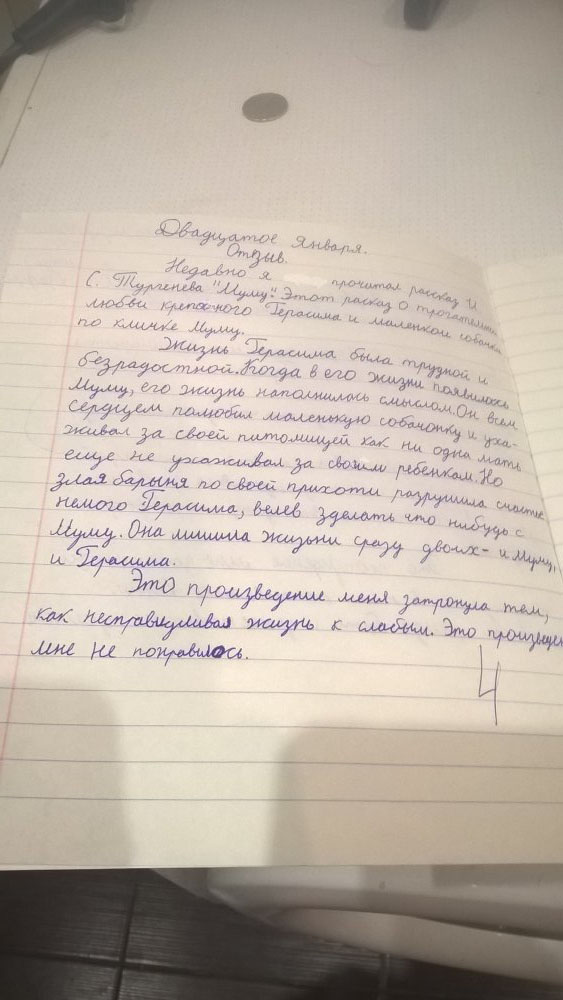 Двадцатое января.
Отзыв.
Недавно я прочитал рассказ И
С. Тургенева "Муму". Этот расказ о трогательной
любви крепосного Герасима и маленкой собачки
по кличке Муму.
Жизнь Герасима была трудной и
безрадостной. Когда в его жизни появилось
Муму, его жизнь наполнилось смыслом. Он всем
сердцем полюбил маленькую собачонку и уха-
живал за своей питомицей как ни одна мать
еще не ухаживал за своим ребенкам. Но
злая барыня по своей прихоти разрушила счастье
немого Герасима, велев зделать что нибудь с
Муму. Она лишила жизьни сразу двоих- и Муму,
и Герасима.
Это произведение меня затронула тем,
как несправидливая жизнь к слабым. Это произведен
мне не понравилось.
4